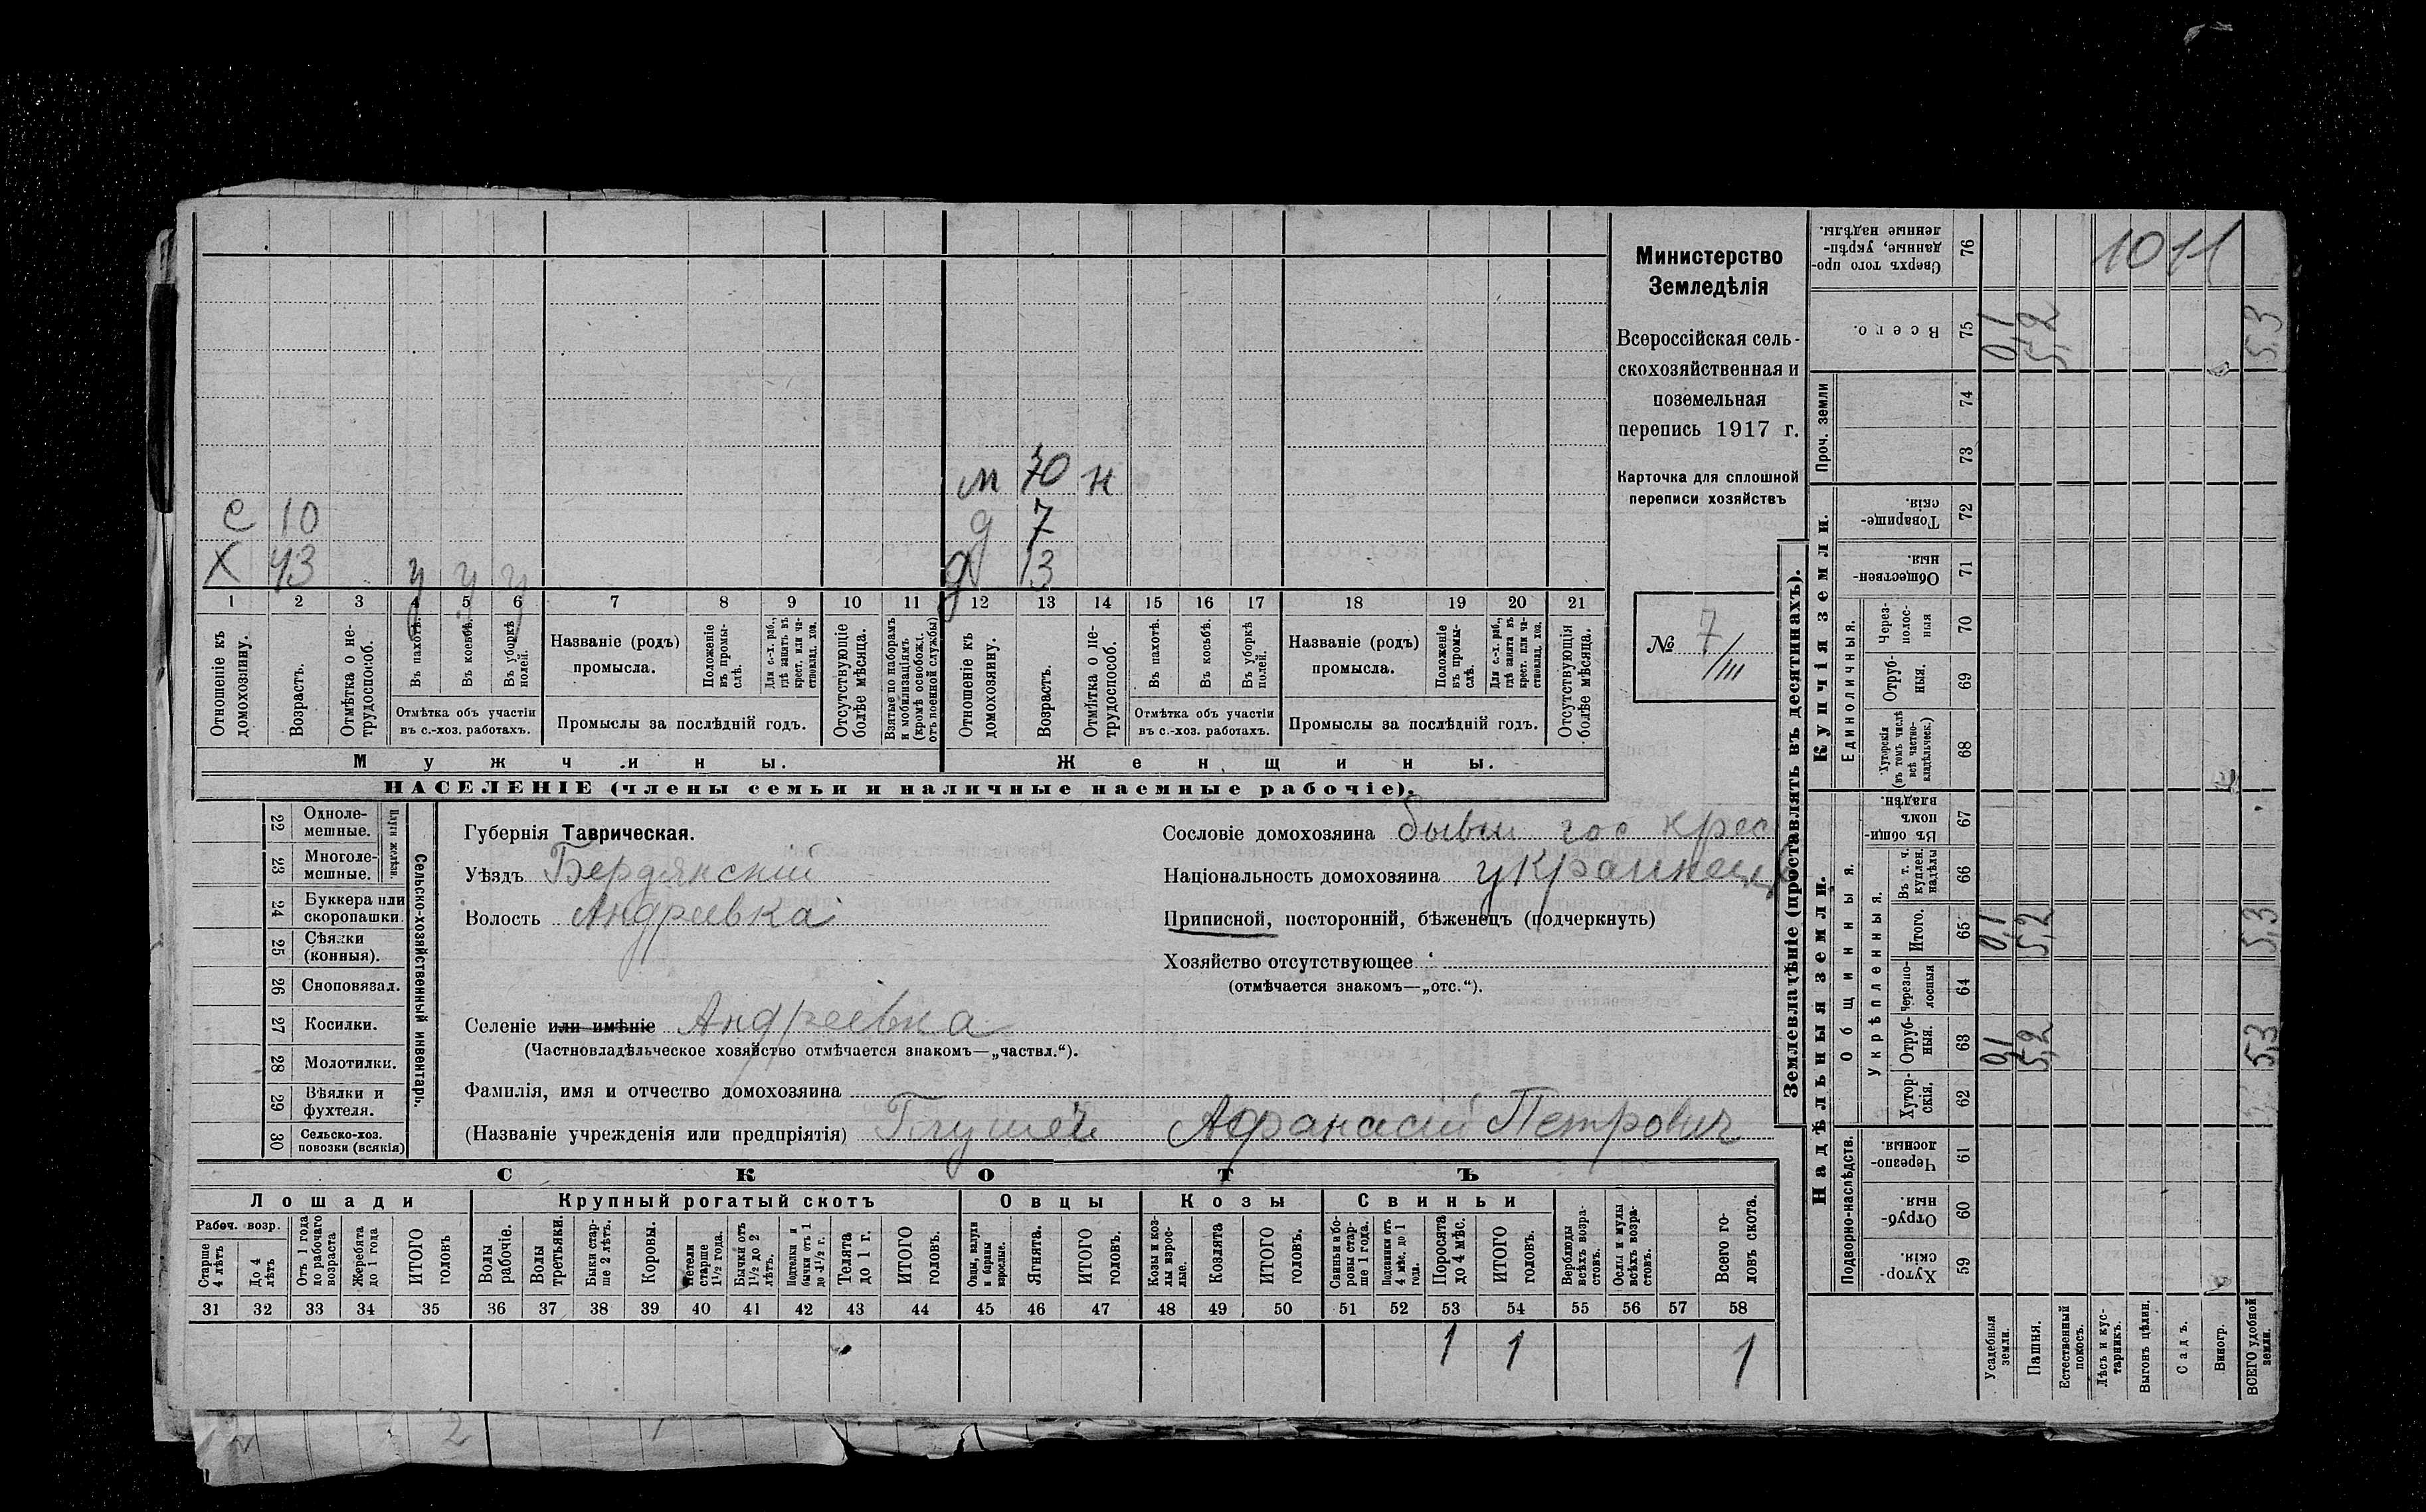 Министерство
Земледѣлія
Всероссійская сель-
скохозяйственная и
поземельная
перепись 1917 г.
Карточка для сплошной
переписи хозяйствъ
№ 7/III
м 70 н
с 10 д 7
х 43 у у у д 13
1 2 3 4 5 6 7 8 9 10 11 12 13 14 15 16 17 18 19 20 21
Отношеніе къ домохозяину.
Возрастъ.
Отмѣтка о не-трудоспособ.
Въ пахотѣ.
Въ косьбѣ.
Въ уборкѣ полей.
Отмѣтка объ участіи
въ с.-хоз. работахъ.
Названіе (родъ)
промысла.
Положеніе въ промы-слѣ.
Для с.-х. раб., гдѣ занятъ въ крест. или ча-стновлад. хоз.
Промыслы за послѣдній годъ.
Отсутствующіе болѣе мѣсяца.
Взятые по наборамъ и мобилизаціямъ (кромѣ освобожд. отъ военной службы)
Отношеніе къ домохозяину.
Возрастъ.
Отмѣтка о не-трудоспособ.
Въ пахотѣ.
Въ косьбѣ.
Въ уборкѣ полей.
Отмѣтка объ участіи
въ с.-хоз. работахъ.
Названіе (родъ)
промысла.
Положеніе въ промы-слѣ.
Для с.-х. раб., гдѣ занятъ въ крест. или ча-стновлад. хоз.
Промыслы за послѣдній годъ.
Отсутствующія болѣе мѣсяца.
Мужчины. Женщины.
НАСЕЛЕНІЕ (члены семьи и наличные наемные рабочіе).
Сельско-хозяйственный инвентарь.
Плуги желѣз.
22 Одноле-мешные.
23 Многоле-мешные.
24 Буккера или скоропашки.
25 Сѣялки (конныя).
26 Сноповязал.
27 Косилки.
28 Молотилки.
29 Вѣялки и фухтеля.
30 Сельско-хоз. повозки (всякія)
Губернія Таврическая.
Уѣздъ Бердянскій
Волость Андреевка
Селеніе или имѣніе Андреевка
(Частновладѣльческое хозяйство отмѣчается знакомъ—„частвл.“).
Фамилія, имя и отчество домохозяина
(Названіе учрежденія или предпріятія) Глушей Афанасій Петрович
Сословіе домохозяина бывш гос крес
Національность домохозяина украинецъ
Приписной, посторонній, бѣженецъ (подчеркнуть)
Хозяйство отсутствующее
(отмѣчается знакомъ—„отс.“).
СКОТЪ
Лошади Крупный рогатый скотъ Овцы Козы Свиньи
Рабоч. возр.
Старше 4 лѣтъ
До 4 лѣтъ
Отъ 1 года до рабочаго возраста
Жеребята до 1 года
ИТОГО головъ
Волы рабочіе.
Волы третьяки.
Быки стар-ше 2 лѣтъ.
Коровы.
Нетели старше 1½ года.
Бычки отъ 1½ до 2 лѣтъ.
Подтелки и бычки отъ 1 до 1½ г.
Телята до 1 г.
ИТОГО головъ.
Овцы, валухи и бараны взрослые.
Ягнята.
ИТОГО головъ.
Козы и коз-лы взрос-лые.
Козлята
ИТОГО головъ.
Свиньи и бо-ровы стар-ше 1 года.
Подсвинки отъ 4 мѣс. до 1 года.
Поросята до 4 мѣс.
ИТОГО головъ.
Верблюды всѣхъ возра-стовъ.
Ослы и мулы всѣхъ возра-стовъ.
Всего го-ловъ скота.
31 32 33 34 35 36 37 38 39 40 41 42 43 44 45 46 47 48 49 50 51 52 53 54 55 56 57 58
1 1 1
Землевладѣніе (проставлять въ десятинахъ).
Надѣльныя земли. Купчія земли. Проч. земли
Подворно-наслѣдств.
Общинныя.
Укрѣпленныя.
Единоличныя.
Хутор-скія. 59
Отруб-ныя. 60
Черезпо-лосныя. 61
Хутор-скія. 62
Отруб-ныя. 63 0,1 5,2 5,3
Черезпо-лосныя 64
Итого. 65 0,1 5,2 5,3
Въ т. ч. куплен. надѣлы 66
Въ общин-номъ владѣн. 67
Хуторскія (въ томъ числѣ всѣ частно-владѣльческ.) 68
Отруб-ныя. 69
Через-полос-ныя 70
Обществен-ныя. 71
Товарище-скія. 72
73
74
Всего. 75 0,1 5,2 5,3
Сверхъ того про-данные, укрѣп-ленные надѣлы. 76
1011
Усадебныя земли.
Пашня.
Естественный покосъ.
Лѣсъ и кус-тарникъ.
Выгонъ цѣлин.
Садъ.
Виногр.
ВСЕГО удобной земли.
2